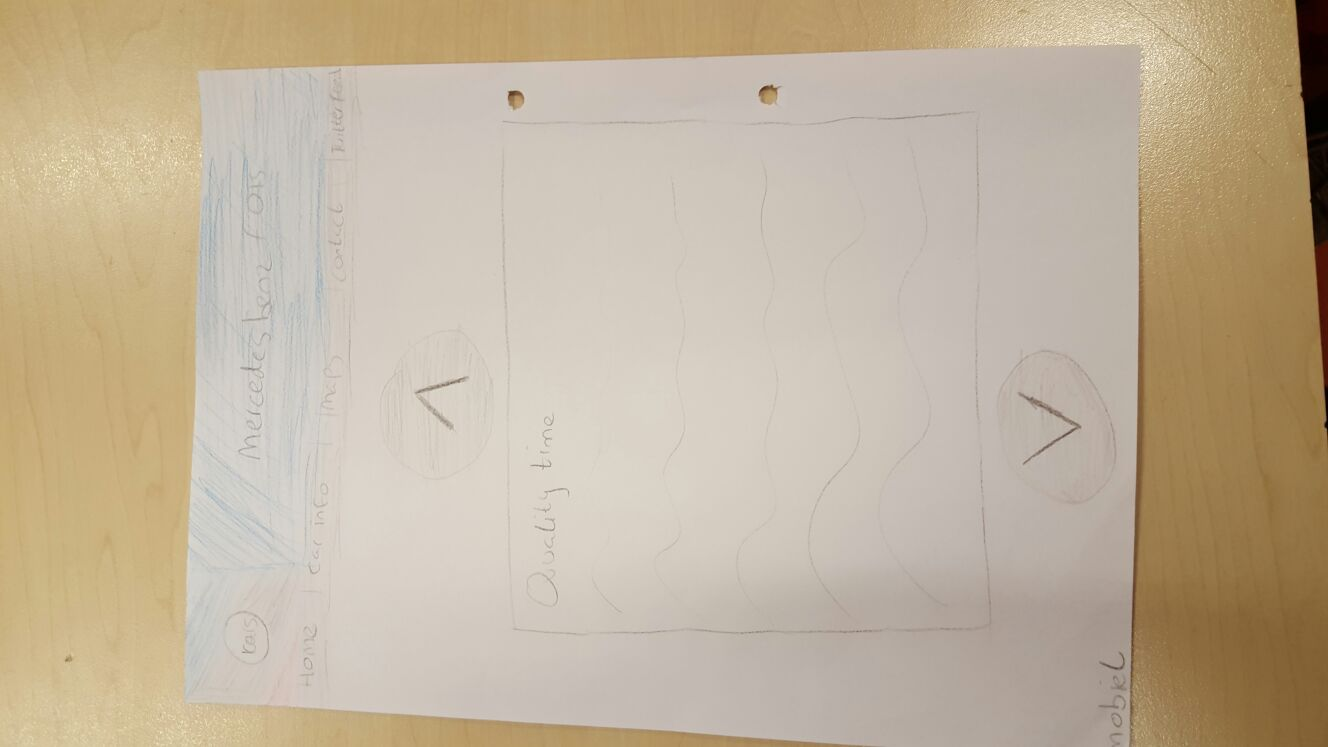 rois
mercedes benz rois
Home | car info | maps | contact | Twitter Feed
Quality time
mobiel